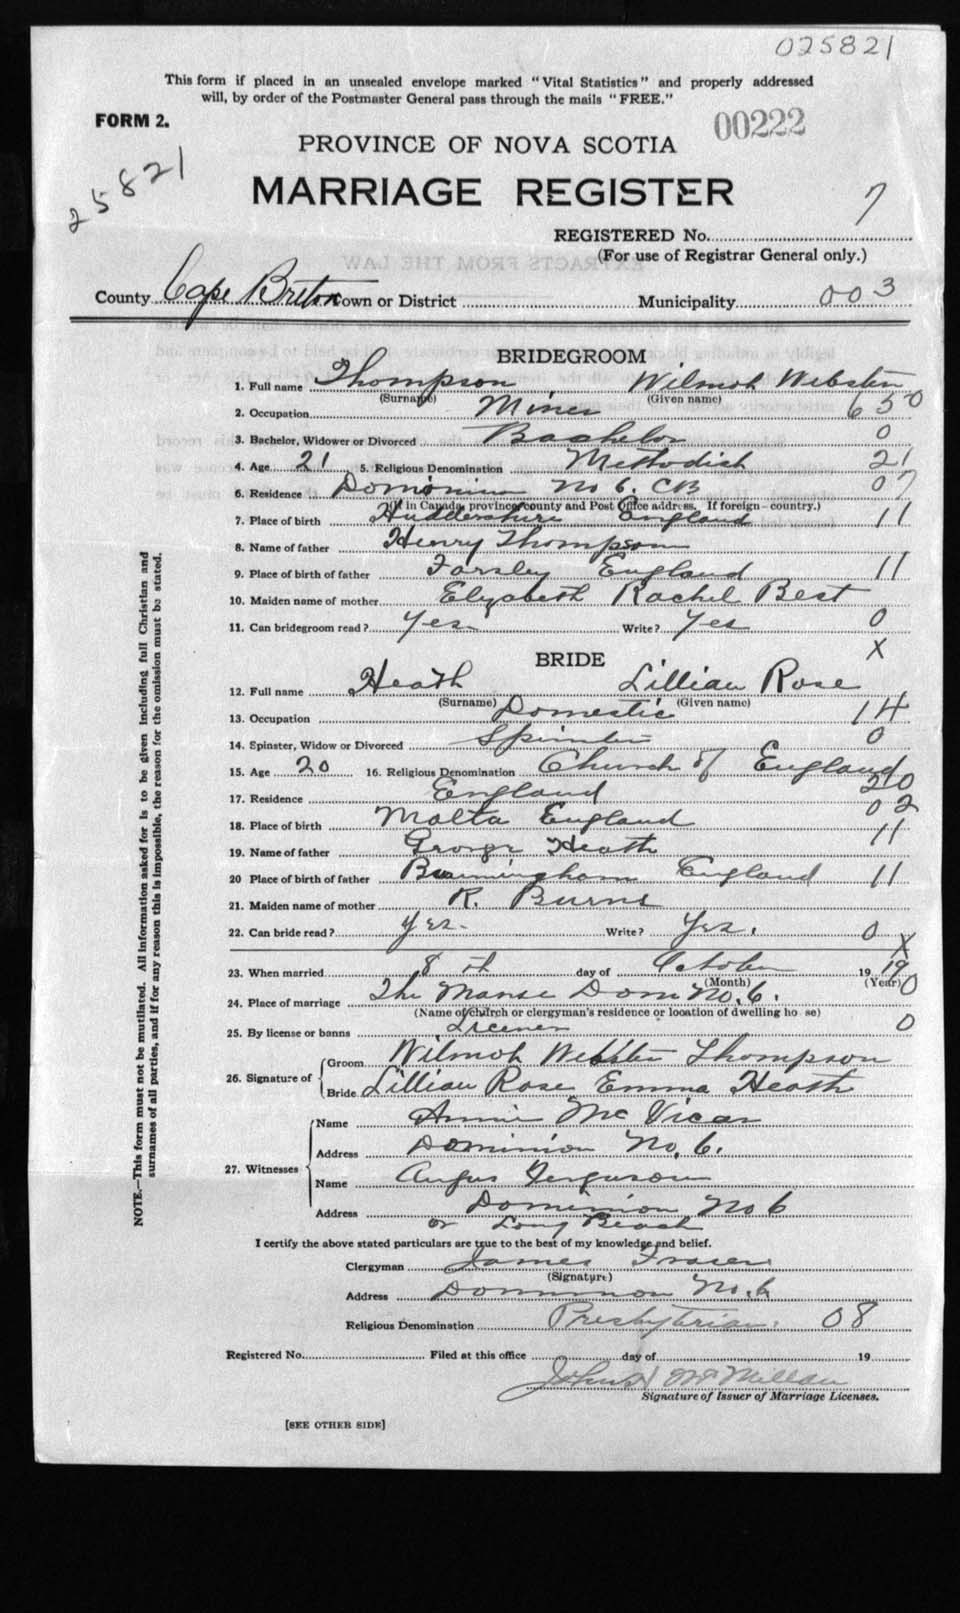 025821
This form if placed in an unsealed envelope marked "Vital Statistics" and properly addressed
will, by order of the Postmaster General pass through the mails "FREE."
FORM 2.
00222
PROVINCE OF NOVA SCOTIA
25821
MARRIAGE REGISTER
7
REGISTERED No.
(For use of Registrar General only.)
County Cape Breton Town or District Municipality 003
BRIDEGROOM
1. Full name Thompson Wilmoh Webster
(Surname) (Given name)
2. Occupation Miner 650
3. Bachelor, Widower or Divorced Bachelor 0
4. Age 21 5. Religious Denomination Methodist 21
6. Residence Dominion No 6. CB 07
(If in Canada, province, county and Post Office address. If foreign - country.)
7. Place of birth Huddershire England 11
8. Name of father Henry Thompson
9. Place of birth of father Farsley England 11
10. Maiden name of mother Elyzabeth Rachel Best
11. Can bridegroom read? Yes Write? Yes 0
X
BRIDE
12. Full name Heath Lillian Rose
(Surname) (Given name)
13. Occupation Domestic 14
14. Spinster, Widow or Divorced Spinster 0
15. Age 20 16. Religious Denomination Church of England
20
17. Residence England 02
18. Place of birth Malta England 11
19. Name of father George Heath
20 Place of birth of father Burmingham England 11
21. Maiden name of mother R. Burns
22. Can bride read? Yes. Write? Yes. 0 X
23. When married 8th day of October 1919
(Month) (Year) 0
24. Place of marriage The Manse Dom No. 6.
(Name of church or clergyman's residence or location of dwelling ho se)
25. By license or banns License 0
26. Signature of Groom Wilmoh Webster Thompson
Bride Lillian Rose Emma Heath
27. Witnesses Name Annie McVicar
Address Dominion No. 6.
Name Angus Ferguson
Address Dominion No 6
or Long Beach
I certify the above stated particulars are true to the best of my knowledge and belief.
Clergyman James Fraser
(Signature)
Address Dominion No. 6
Religious Denomination Presbyterian. 08
Registered No. Filed at this office day of 19
John McMillan
Signature of Issuer of Marriage Licenses.
[SEE OTHER SIDE]
NOTE.—This form must not be mutilated. All information asked for is to be given including full Christian and
surnames of all parties, and if for any reason this is impossible, the reason for the omission must be stated.